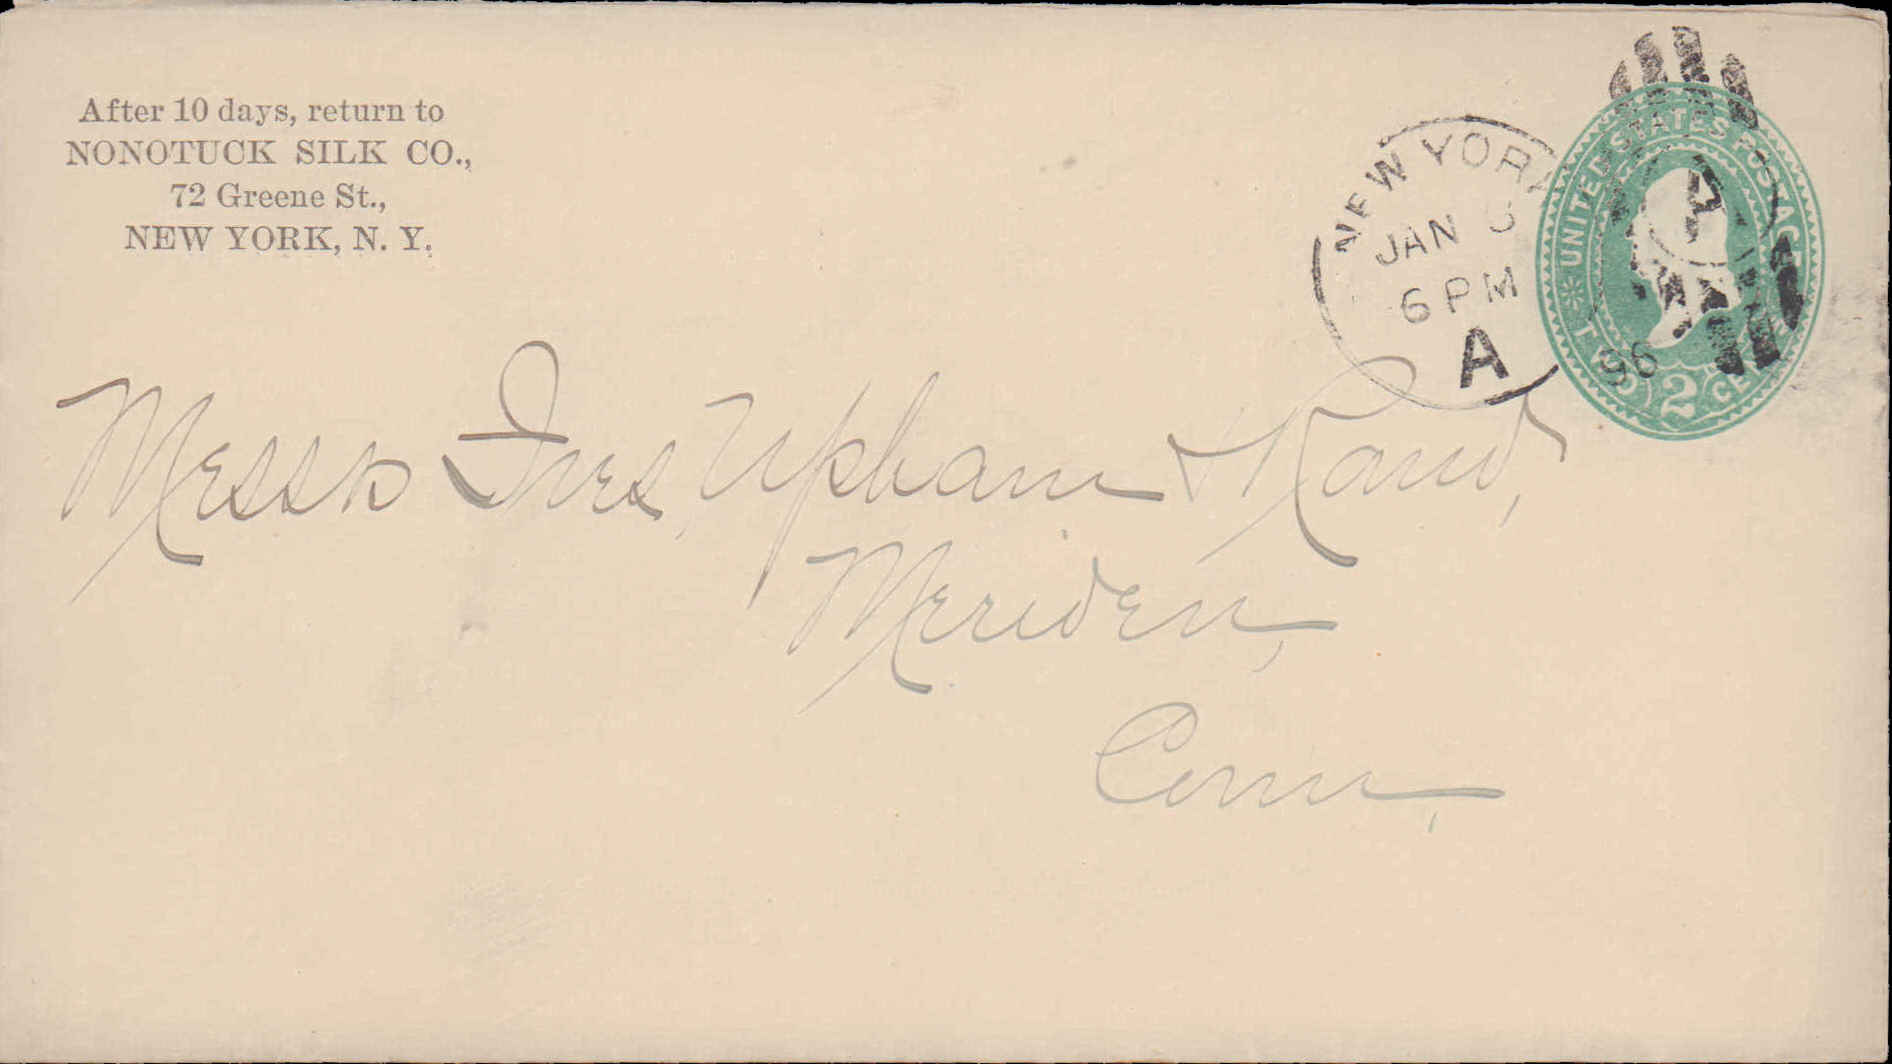 After 10 days, return to
NONOTUCK SILK CO.,
72 Greene St.,
NEW YORK, N. Y.
NEW YORK
JAN
6 PM
A
96
UNITED STATES POSTAGE
TWO 2 CENTS
Messrs Ives, Upham & Rand,
Meriden,
Conn,